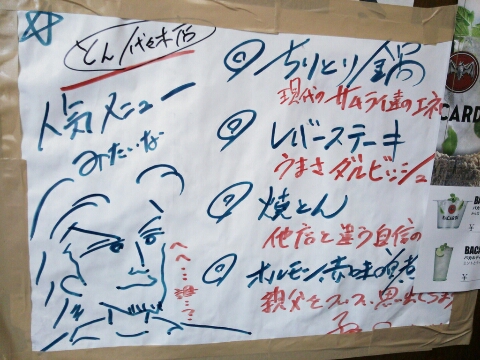 とん 代々木店
人気メニュー
みたいな
ちりとり鍋
現代のサムライ達のエネ
レバーステーキ
うまさダルビッシュ
焼とん
他店と違う自信の
ホルモン、赤味噌煮
親父と
へへ…誰…?
CARD
BACA